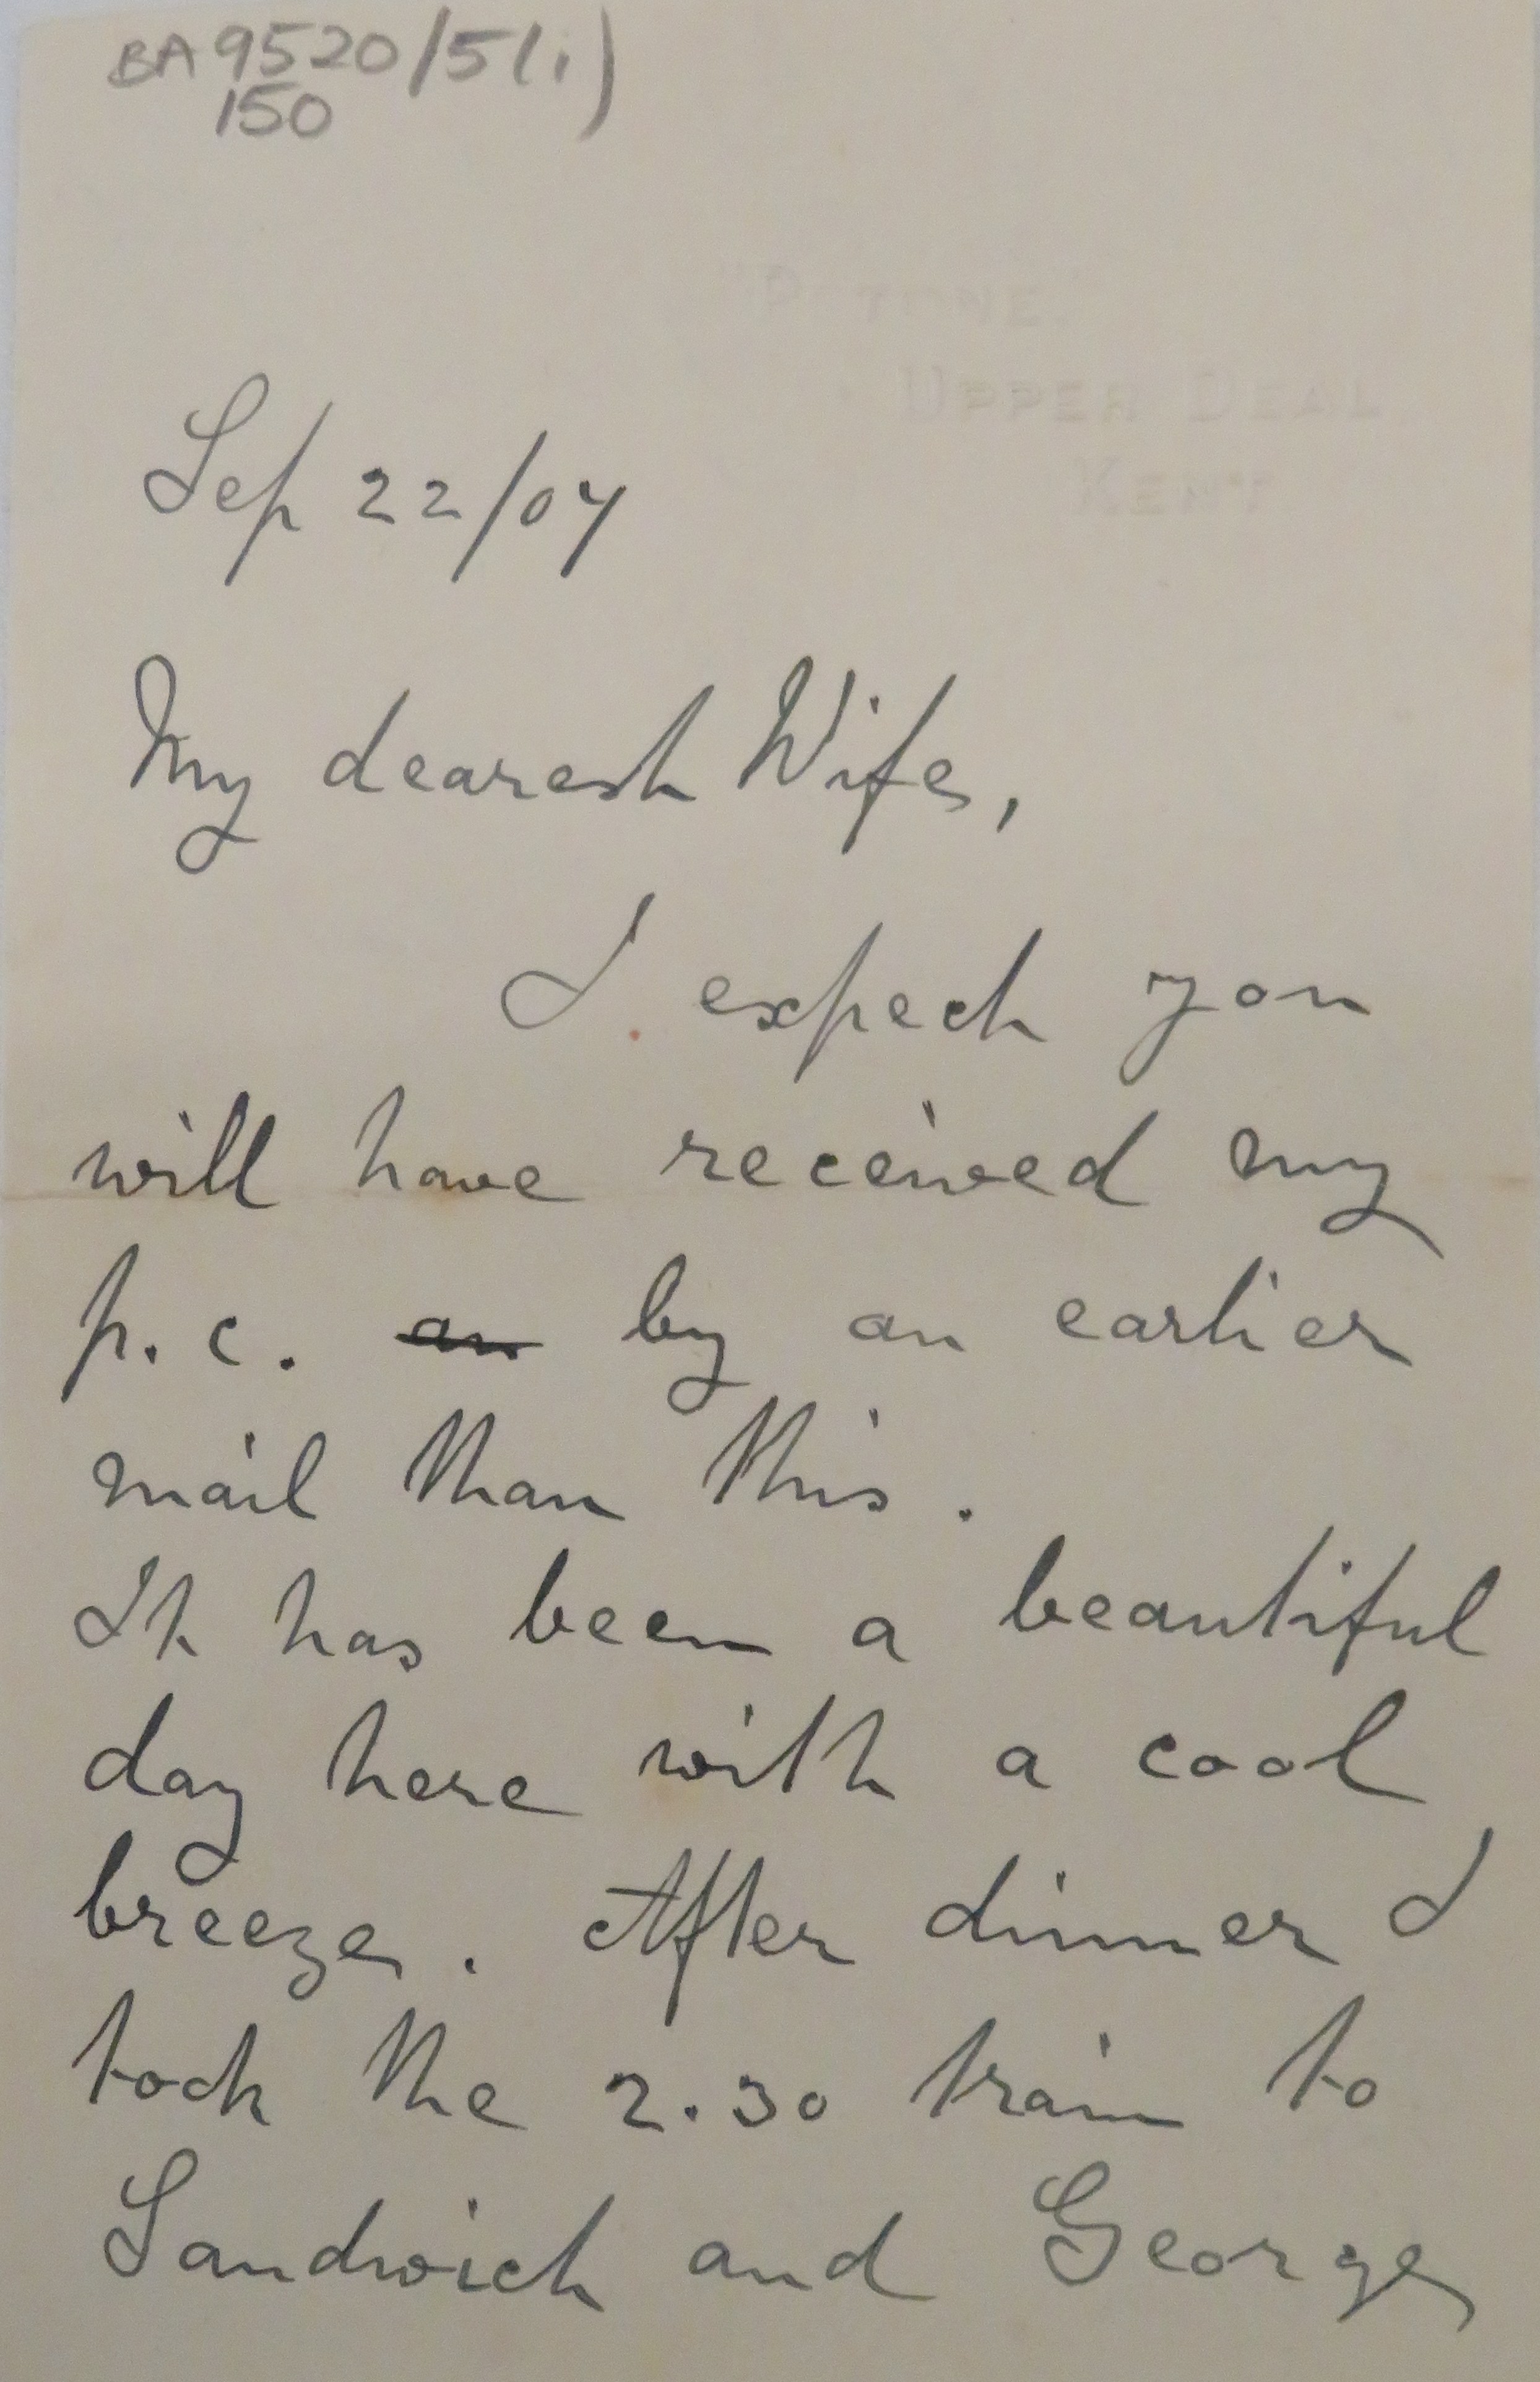 BA 9520/5(i)
150
UPPER DEAL
KENT.
Sep 22/07
My dearest Wife,
I expect you
will have received my
p.c. an by an earlier
mail than this.
It has been a beautiful
day here with a cool
breeze. After dinner I
took the 2.30 train to
Sandwich and George